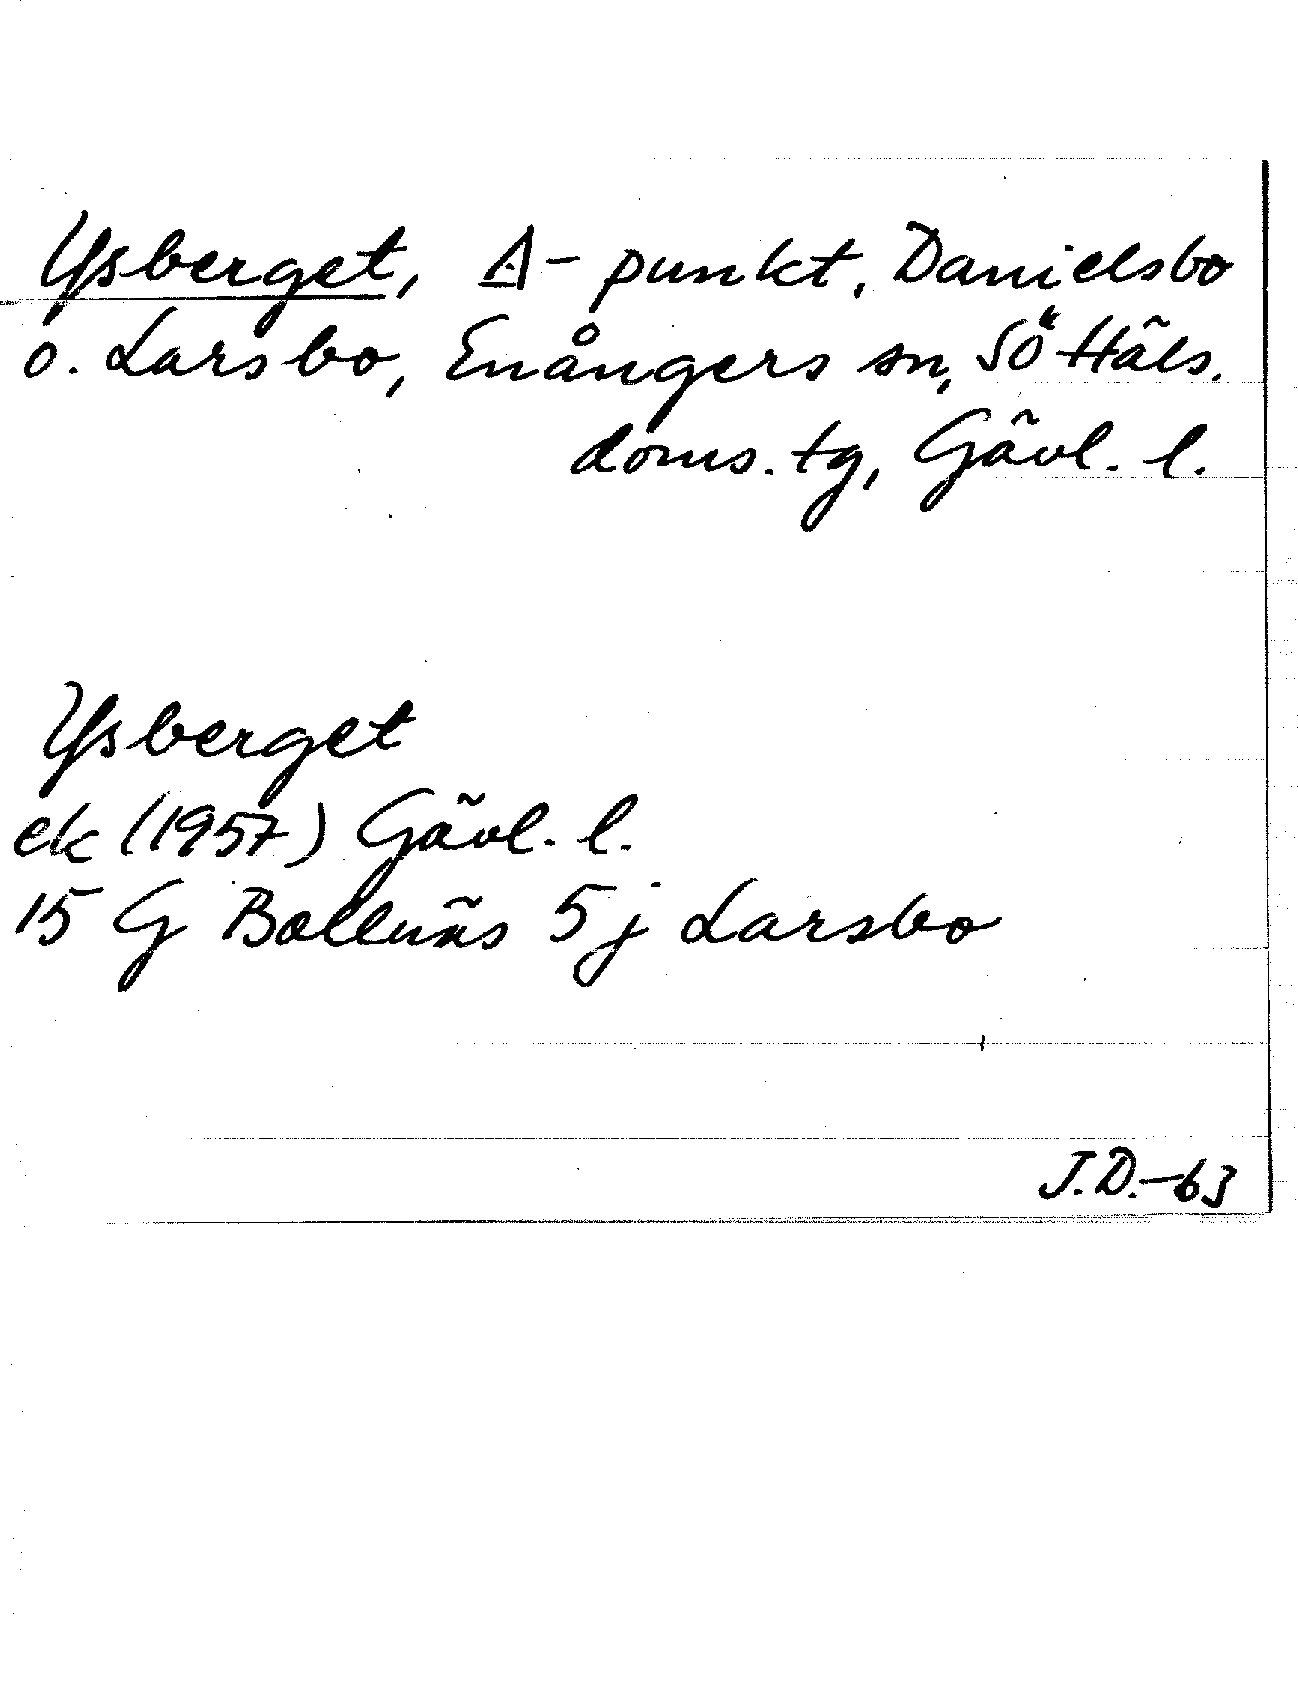 Ysberget, ∆-punkt, Danielsbo
o. Larsbo, Enångers sn, SÖ Häls.
doms. tg, Gävl. l.
Ysberget
ek (1957) Gävl. l.
15 G Bollnäs 5j Larsbo
J.D.-63